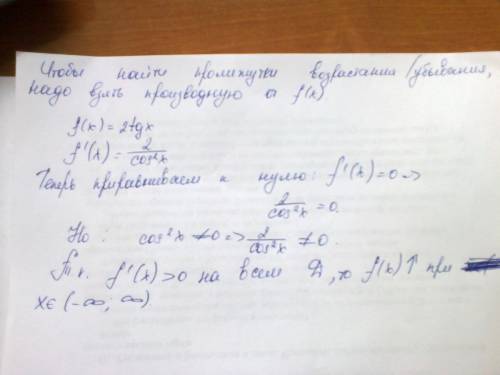 Чтобы найти промежутки возрастания/убывания,
надо взять производную от f(x).
f(x)=2tgx
f'(x)=2/cos²x
Теперь приравниваем к нулю: f'(x)=0 =>
2/cos²x=0.
Но: cos²x≠0 => 2/cos²x≠0.
т.к. f'(x)>0 на всем D, то f(x)↑ при
x∈(-∞; ∞)